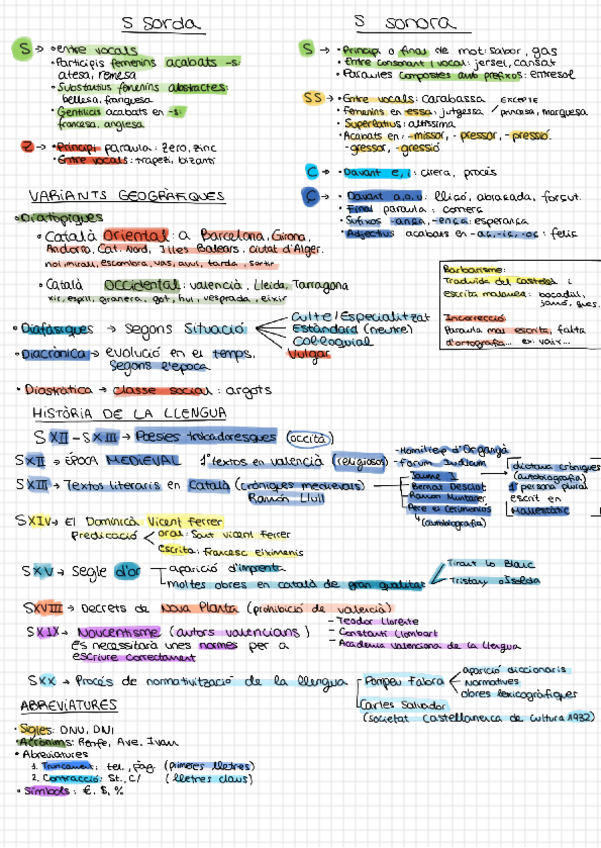 S SORDA
S → • entre vocals
• Participis femenins acabats -s:
atesa, remesa
• Substantius femenins abstractes:
bellesa, franquesa
• Gentilicis acabats en -s:
francesa, anglesa
Z → • Principi paraula: zero, zinc
• Entre vocals: trapezi, bizantí
S SONORA
S → • Principi o final de mot: sabor, gas
• Entre consonant i vocal: jersei, cansat
• Paraules compostes amb prefixos: entresol
SS → • Entre vocals: carabassa / EXCEPTE
• Femenins en -essa: jutgessa / princesa, marquesa
• Superlatius: altíssima
• Acabats en: -missor, -pressor, -pressió
-gressor, -gressió
C → • Davant e, i: cirera, procés
Ç → • Davant a, o, u: lliçó, abraçada, forçut.
• Final paraula: comerç
• Sufixos -ança, -ença: esperança
• Adjectius acabats en -aç, -iç, -oç: feliç
VARIANTS GEOGRÀFIQUES
• Diatòpiques
• Català oriental: a Barcelona, Girona,
Andorra, Cat. Nord, Illes Balears, ciutat d'Alger.
noi, mirall, escombra, vas, avui, tarda, sortir
• Català occidental: valencià, Lleida, Tarragona
xic, espill, granera, got, hui, vesprada, eixir
Barbarisme:
Traduïda del castellà i
escrita malament: bocadill,
Incorrecció
Paraula mal escrita, falta
d'ortografia... ex: vaix...
• Diafàsiques → segons situació
Culte/Especialitzat
Estàndard (neutre)
Col·loquial
Vulgar
• Diacrònica → evolució en el temps.
Segons l'època
• Diastràtica → classe social: argots
HISTÒRIA DE LA LLENGUA
S XII - S XIII → Poesies trobadoresques (occità)
S XII → ÈPOCA MEDIEVAL 1r textos en valencià (religiosos)
- Homilies d'Organyà
- Forum Iudicum
S XIII → Textos literaris en Català (cròniques medievals)
Ramon Llull
Jaume I
Bernat Desclot
Ramon Muntaner
Pere el Cerimoniós
↳ (autobiografia)
dictava cròniques
(autobiografia)
1ª persona plural
escrit en
S XIV → El Dominicà Vicent Ferrer
Predicació
oral: Sant Vicent Ferrer
escrita: Francesc Eiximenis
S XV → Segle d'or
aparició d'imprenta
moltes obres en català de gran qualitat
Tirant lo Blanc
Tristany i Isolda
S XVIII → Decrets de Nova Planta (prohibició de valencià)
S XIX → Noucentisme (autors valencians)
És necessitarà unes normes per a
escriure correctament
- Teodor Llorente
- Constantí Llombart
- Acadèmia valenciana de la llengua
S XX → Procés de normativització de la llengua
Pompeu Fabra
aparició diccionaris
normatives
obres lexicogràfiques
Carles Salvador
(Societat Castellonenca de Cultura 1932)
ABREVIATURES
• Sigles: ONU, DNI
• Acrònims: Renfe, Ave, Ivam
• Abreviatures
1. Truncament: tel., pàg. (primeres lletres)
2. Contracció: St., C/ (lletres claus)
• Símbols: €, $, %